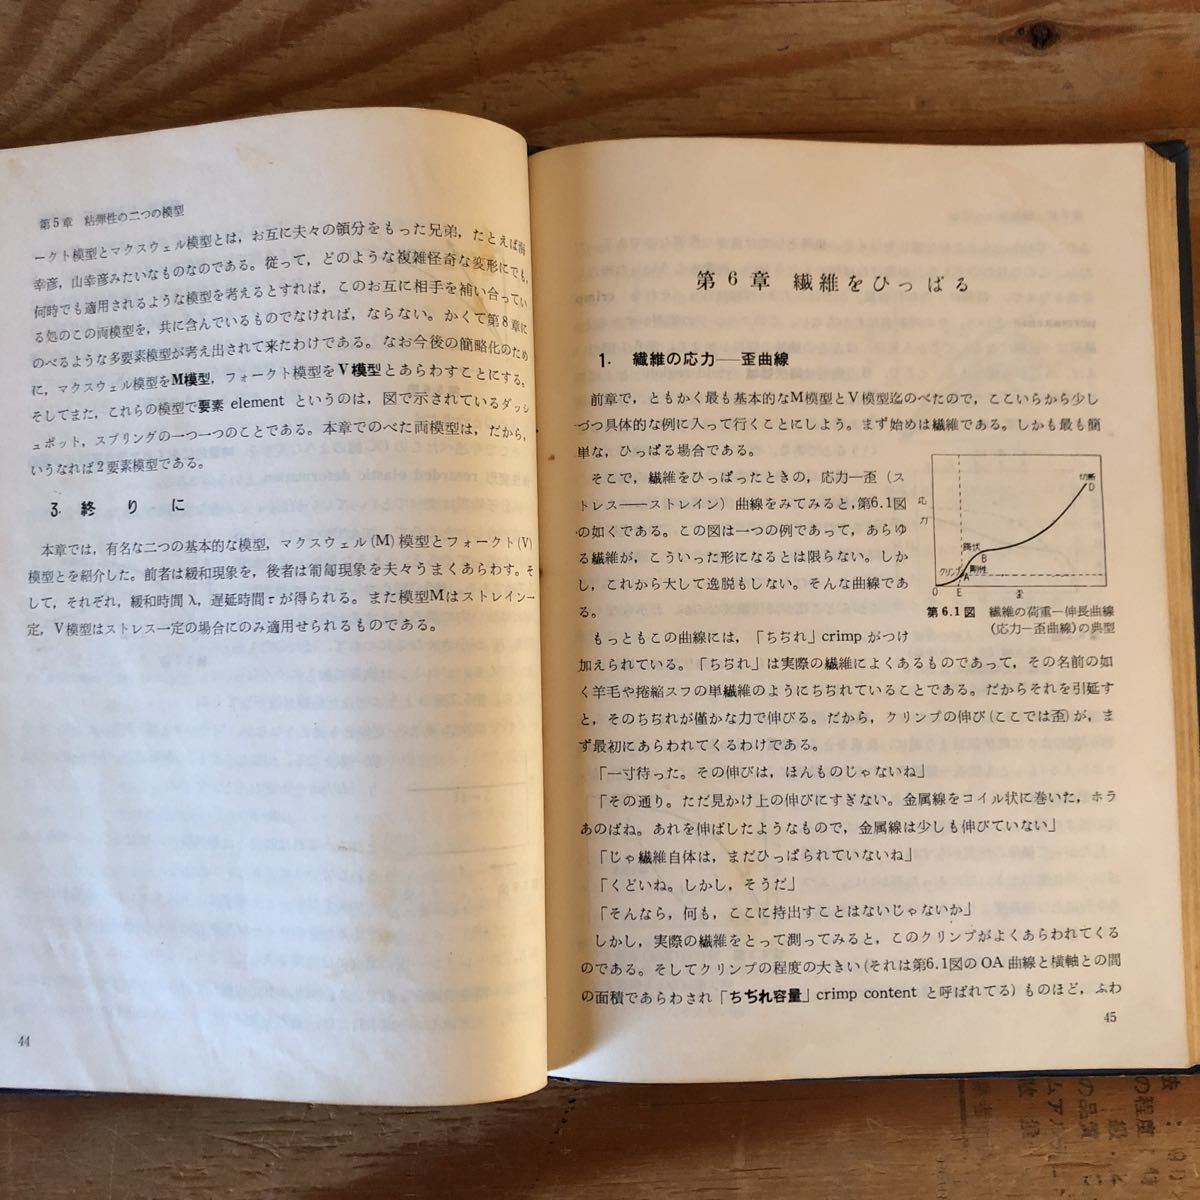 第5章 粘弾性の二つの模型
ークト模型とマクスウェル模型とは，お互に夫々の領分をもった兄弟，たとえば海
幸彦，山幸彦みたいなものなのである。従って，どのような複雑怪奇な変形にでも，
何時でも適用されるような模型を考えるとすれば，このお互に相手を補い合ってい
る処のこの両模型を，共に含んでいるものでなければ，ならない。かくて第8章に
のべるような多要素模型が考え出されて来たわけである。なお今後の簡略化のため
に，マクスウェル模型をM模型，フォークト模型をV模型とあらわすことにする。
そしてまた，これらの模型で要素 element というのは，図で示されているダッシ
ュポット，スプリングの一つ一つのことである。本章でのべた両模型は，だから，
いうなれば2要素模型である。
3. 終りに
本章では，有名な二つの基本的な模型，マクスウェル(M)模型とフォークト(V)
模型とを紹介した。前者は緩和現象を，後者は匍匐現象を夫々うまくあらわす。そ
して，それぞれ，緩和時間λ，遅延時間τが得られる。また模型Mはストレイン一
定，V模型はストレス一定の場合にのみ適用せられるものである。
44
第6章 繊維をひっぱる
1. 繊維の応力——歪曲線
前章で，ともかく最も基本的なM模型とV模型迄のべたので，ここいらから少し
づつ具体的な例に入って行くことにしよう。まず始めは繊維である。しかも最も簡
単な，ひっぱる場合である。
そこで，繊維をひっぱったときの，応力―歪（ス
トレス――ストレイン）曲線をみてみると，第6.1図
の如くである。この図は一つの例であって，あらゆ
る繊維が，こういった形になるとは限らない。しか
し，これから大して逸脱もしない。そんな曲線であ
る。
応力
切断
D
降伏
B
クリンプ
A
剛性
O
E
歪
第6.1図 繊維の荷重―伸長曲線
（応力―歪曲線）の典型
もっともこの曲線には，「ちぢれ」crimp がつけ
加えられている。「ちぢれ」は実際の繊維によくあるものであって，その名前の如
く羊毛や捲縮スフの単繊維のようにちぢれていることである。だからそれを引延す
と，そのちぢれが僅かな力で伸びる。だから，クリンプの伸び（ここでは歪）が，ま
ず最初にあらわれてくるわけである。
「一寸待った。その伸びは，ほんものじゃないね」
「その通り。ただ見かけ上の伸びにすぎない。金属線をコイル状に巻いた，ホラ
あのばね。あれを伸ばしたようなもので，金属線は少しも伸びていない」
「じゃ繊維自体は，まだひっぱられていないね」
「くどいね。しかし，そうだ」
「そんなら，何も，ここに持出すことはないじゃないか」
しかし，実際の繊維をとって測ってみると，このクリンプがよくあらわれてくる
のである。そしてクリンプの程度の大きい（それは第6.1図の OA 曲線と横軸との間
の面積であらわされ「ちぢれ容量」crimp content と呼ばれてる）ものほど，ふわ
45